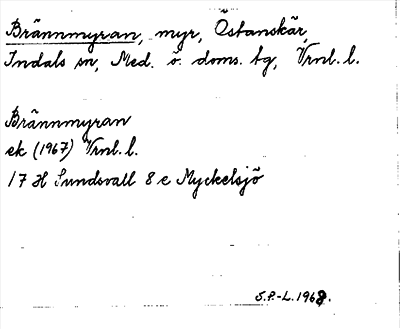 Brännmyran, myr, Östanskär,
Indals sn, Med. ö. doms. tg, Vrnl. l.
Brännmyran
ek (1967) Vrnl. l.
17 H Sundsvall 8 e Myckelsjö
S.P.-L. 1968.